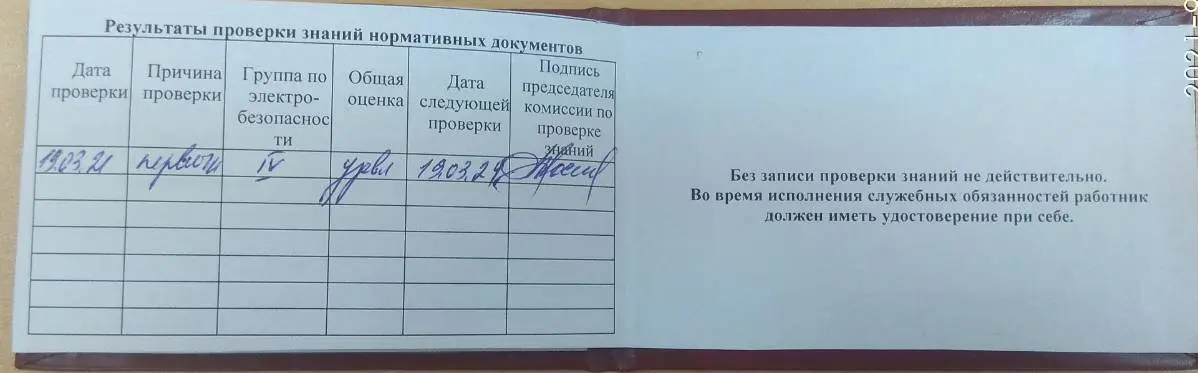 Результаты проверки знаний нормативных документов
Дата
проверки
Причина
проверки
Группа по
электро-
безопаснос
ти
Общая
оценка
Дата
следующей
проверки
Подпись
председателя
комиссии по
проверке
знаний
19.03.21
первичн
IV
удовл
19.03.24
Без записи проверки знаний не действительно.
Во время исполнения служебных обязанностей работник
должен иметь удостоверение при себе.